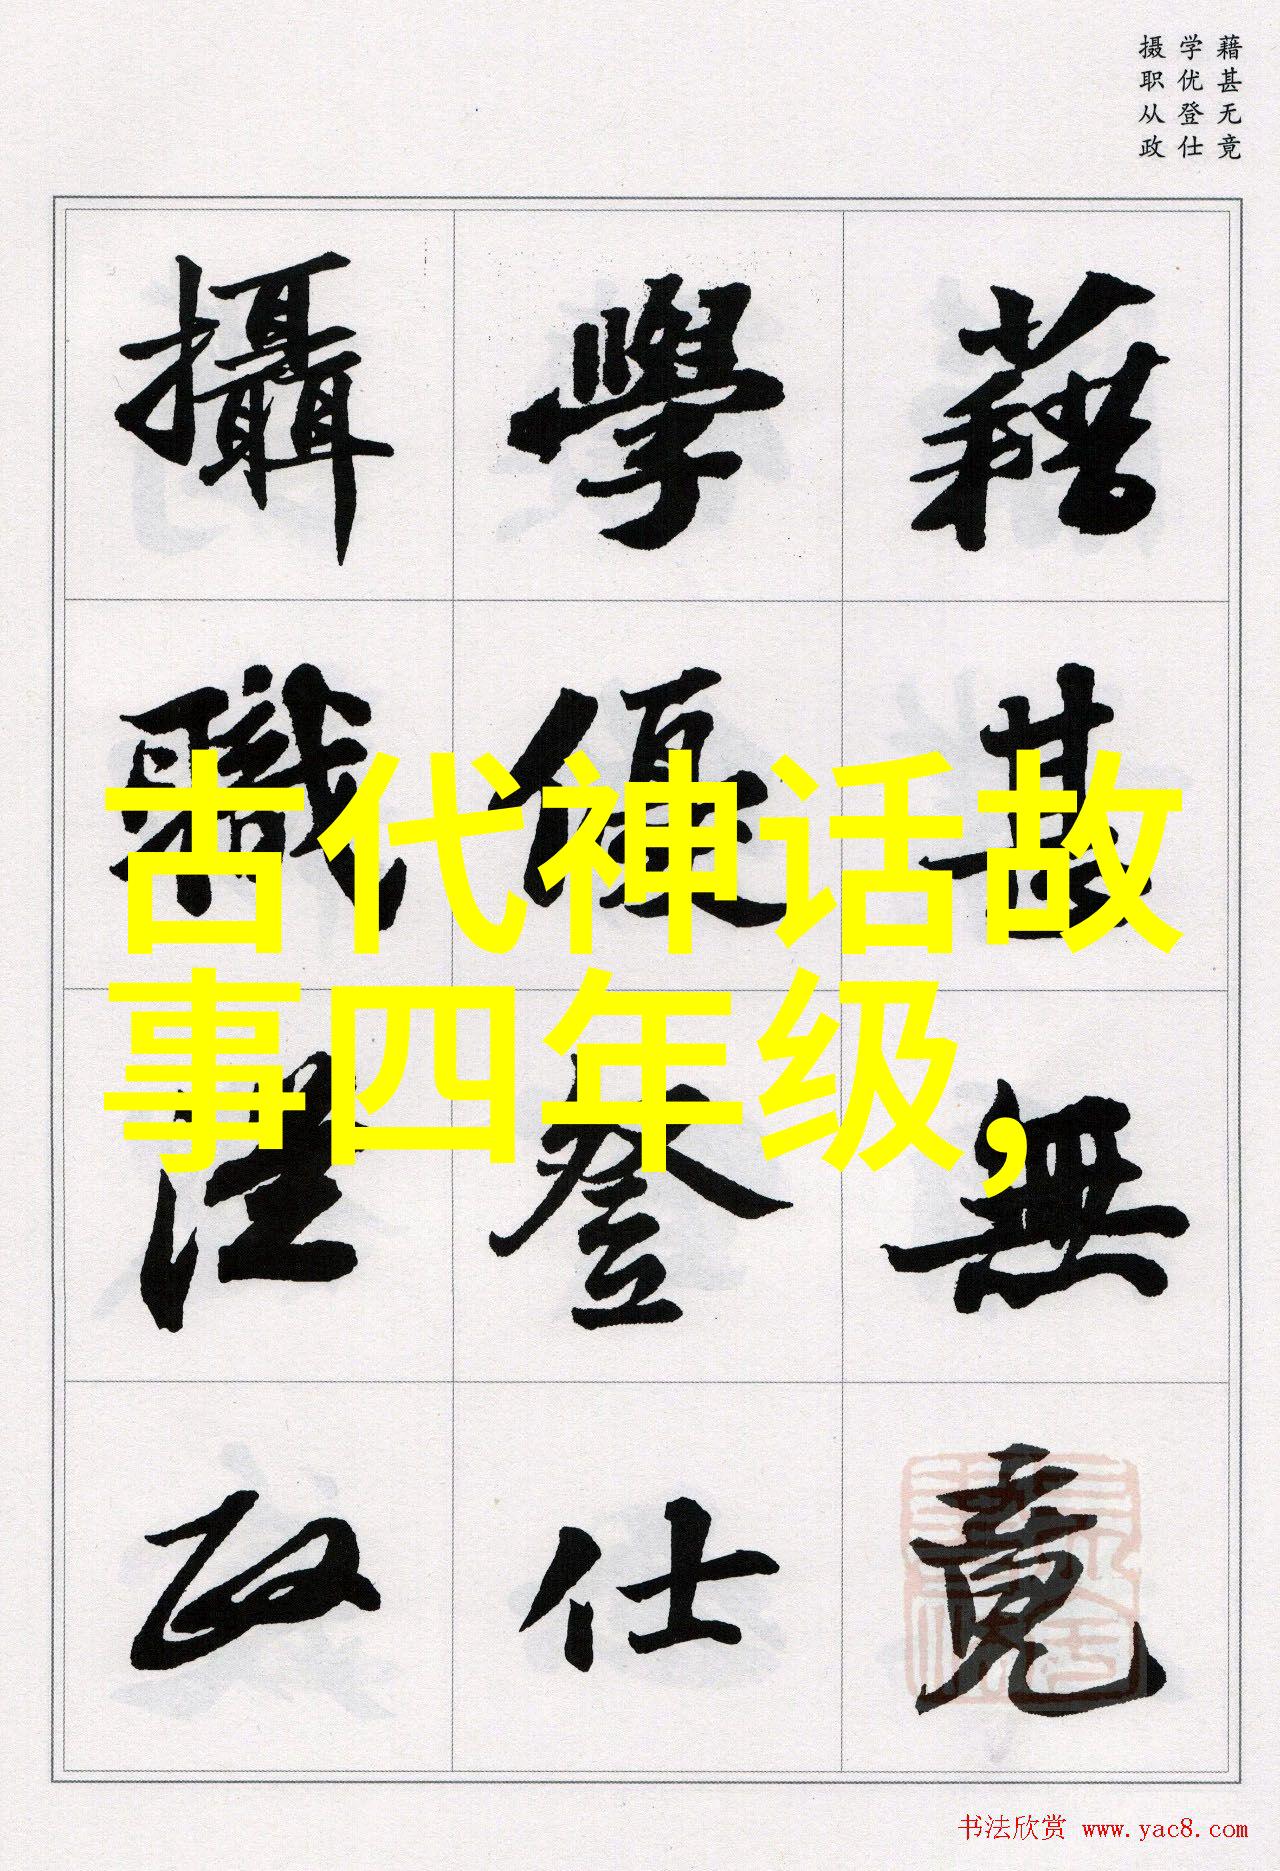 藉甚无竟
学优登仕
摄职从政
藉甚無竟
學優登仕
攝職從政
古代神话故
事四年级,
书法欣赏 www.yac8.com